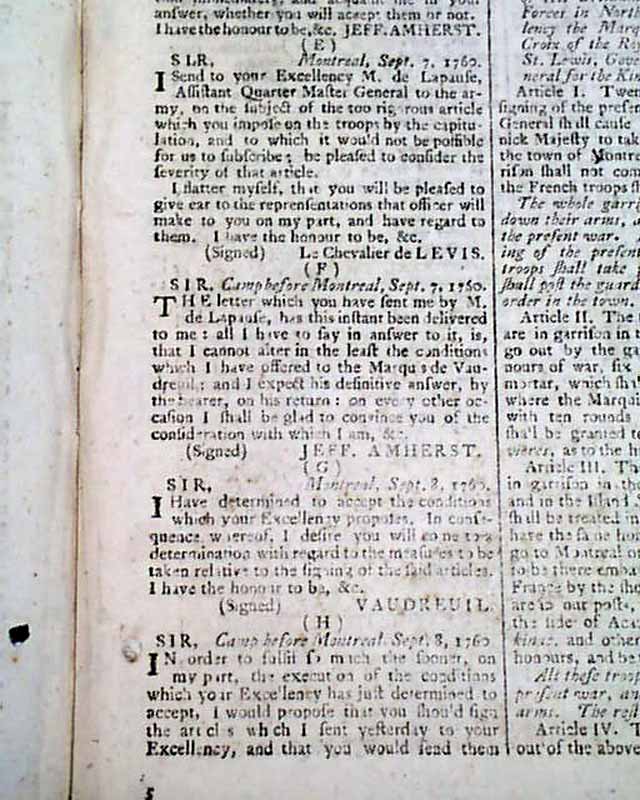 answer, whether you will accept them or not.
I have the honour to be, &c. JEFF. AMHERST.
( E )
SIR, Montreal, Sept. 7, 1760.
I Send to your Excellency M. de Lapause,
Assistant Quarter Master General to the ar-
my, on the subject of the too rigorous article
which you impose on the troops by the capitu-
lation, and to which it would not be possible
for us to subscribe; be pleased to consider the
severity of that article.
I flatter myself, that you will be pleased to
give ear to the reprensentations that officer will
make to you on my part, and have regard to
them. I have the honour to be, &c.
(Signed) Le Chevalier de LEVIS.
( F )
SIR, Camp before Montreal, Sept. 7, 1760.
THE letter which you have sent me by M.
de Lapause, has this instant been delivered
to me: all I have to say in answer to it, is,
that I cannot alter in the least the conditions
which I have offered to the Marquis de Vau-
dreuil: and I expect his definitive answer, by
the bearer, on his return: on every other oc-
casion I shall be glad to convince you of the
consideration with which I am, &c.
(Signed) JEFF. AMHERST.
( G )
SIR, Montreal, Sept. 8, 1760.
I Have determined to accept the conditions
which your Excellency proposes. In conse-
quence whereof, I desire you will come to a
determination with regard to the measures to be
taken relative to the signing of the said articles.
I have the honour to be, &c.
(Signed) VAUDREUIL.
( H )
SIR, Camp before Montreal, Sept. 8, 1760
IN order to fulfil so much the sooner, on
my part, the execution of the conditions
which your Excellency has just determined to
accept, I would propose that you should sign
the articles which I sent yesterday to your
Excellency, and that you would send them
5
Forces in North
lency the Marq
Croix of the Ro
St. Lewis, Gove
neral for the Kin
Article I. Twen
signing of the prese
General shall cause
nick Majesty to tak
the town of Montre
rison shall not com
the French troops s
The whole garri
down their arms, a
the present war.
ing of the present
troops shall take
shall post the guard
order in the town.
Article II. The t
are in garrison in t
go out by the ga
nours of war, six
mortar, which sh
where the Marqui
with ten rounds
shall be granted to
weres, as to the h
Article III. Th
in garrison in the
and in the Island
shall be treated in
have the same hon
go to Montreal o
to be there emba
France by the sho
are in our posts,
the side of Aca
kinac, and other
honours, and be
All these troop
present war, an
arms. The rest
Article IV. T
out of the above